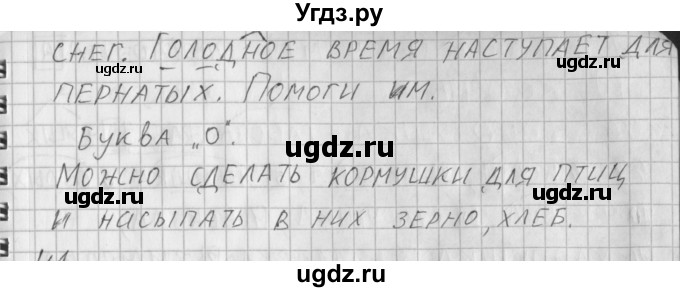 Угдз.ру
СНЕГ. ГОЛОДНОЕ ВРЕМЯ НАСТУПАЕТ ДЛЯ
ugdz.ru ugdz.ru
ПЕРНАТЫХ. ПОМОГИ ИМ.
ugdz.ru
БУКВА „О".
ugdz.ru
МОЖНО СДЕЛАТЬ КОРМУШКИ ДЛЯ ПТИЦ
ugdz.ru ugdz.ru
И НАСЫПАТЬ В НИХ ЗЕРНО, ХЛЕБ.
ugdz.ru
ugdz.ru